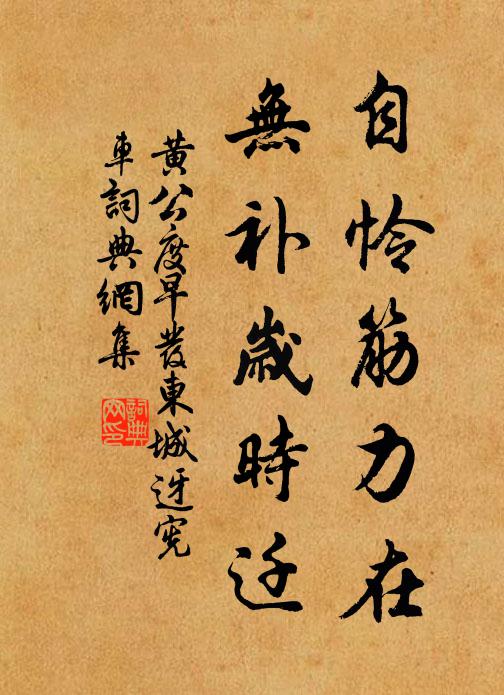 自怜筋力在
無补嵗時迁
黄公度早發東城迓宪
車詞典網集
詞典
网印